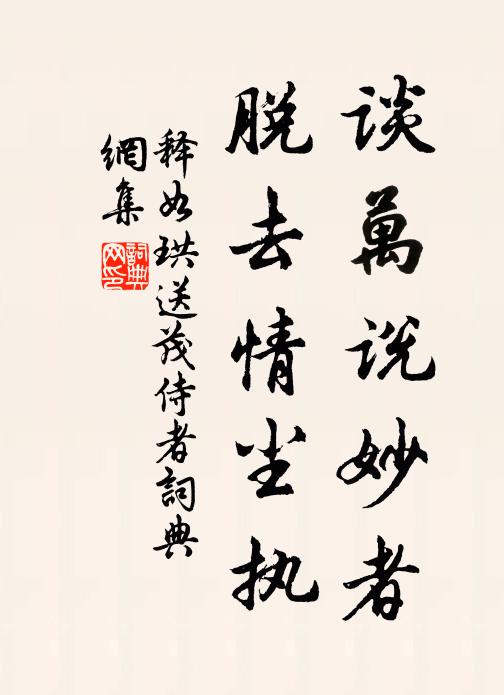 谈萬说妙者
脱去情尘执
释如珙送茂侍者詞典
網集
詞典网印